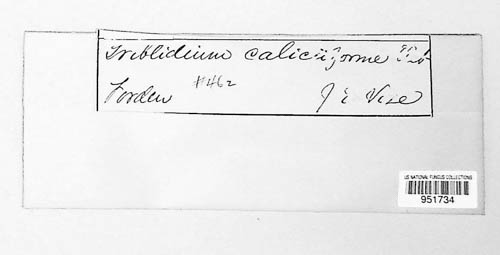 Triblidium caliciiforme
Forden #462 J E Vize
US NATIONAL FUNGUS COLLECTIONS
951734